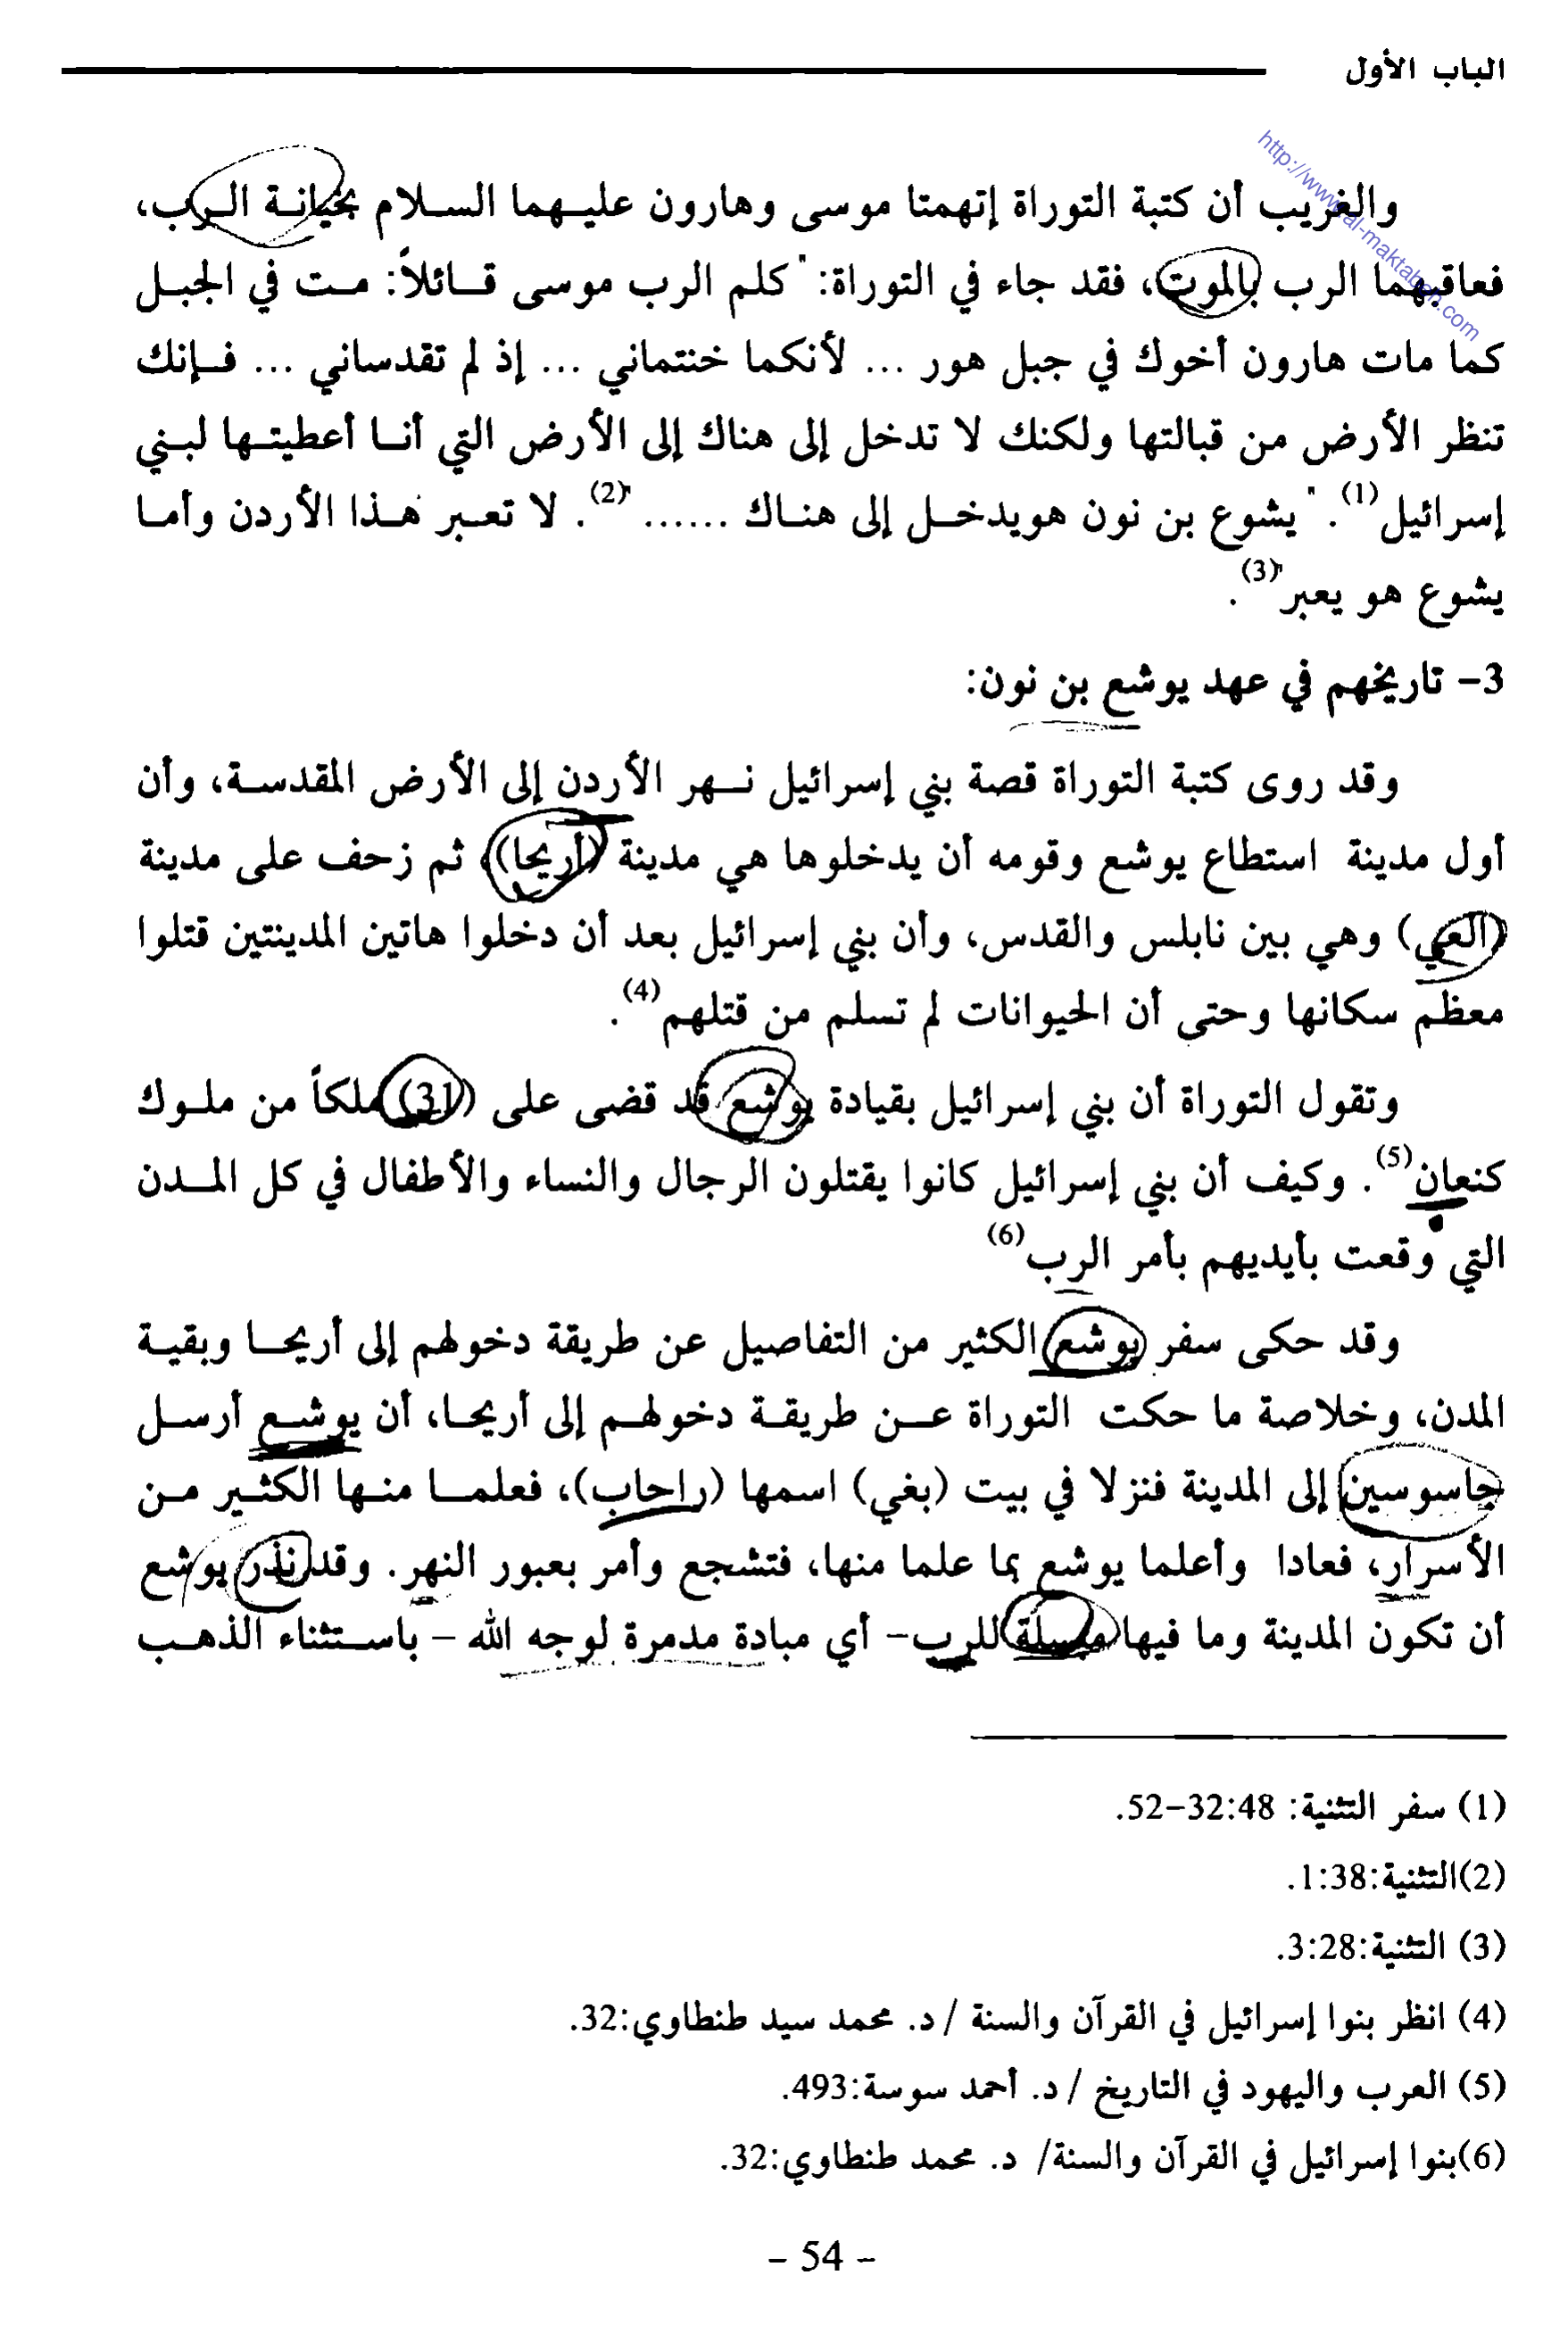 الباب الأول
http://www.al-maktabeh.com
والغريب أن كتبة التوراة إتهمتا موسى وهارون عليهما السلام بخيانة الرب،
فعاقبهما الرب بالموت، فقد جاء في التوراة: "كلم الرب موسى قائلاً: مت في الجبل
كما مات هارون أخوك في جبل هور ... لأنكما خنتماني ... إذ لم تقدساني ... فإنك
تنظر الأرض من قبالتها ولكنك لا تدخل إلى هناك إلى الأرض التي أنا أعطيتها لبني
إسرائيل(1). "يشوع بن نون هويدخل إلى هناك ......"(2). لا تعبر هذا الأردن وأما
يشوع هو يعبر"(3).
3- تاريخهم في عهد يوشع بن نون:
وقد روى كتبة التوراة قصة بني إسرائيل نهر الأردن إلى الأرض المقدسة، وأن
أول مدينة استطاع يوشع وقومه أن يدخلوها هي مدينة (أريحا)، ثم زحف على مدينة
(العي) وهي بين نابلس والقدس، وأن بني إسرائيل بعد أن دخلوا هاتين المدينتين قتلوا
معظم سكانها وحتى أن الحيوانات لم تسلم من قتلهم(4).
وتقول التوراة أن بني إسرائيل بقيادة يوشع قد قضى على (31) ملكاً من ملوك
كنعان(5). وكيف أن بني إسرائيل كانوا يقتلون الرجال والنساء والأطفال في كل المدن
التي وقعت بأيديهم بأمر الرب(6)
وقد حكى سفر يوشع الكثير من التفاصيل عن طريقة دخولهم إلى أريحا وبقية
المدن، وخلاصة ما حكت التوراة عن طريقة دخولهم إلى أريحا، أن يوشع أرسل
جاسوسين إلى المدينة فنزلا في بيت (بغي) اسمها (راحاب)، فعلما منها الكثير من
الأسرار، فعادا وأعلما يوشع بما علما منها، فتشجع وأمر بعبور النهر. وقد نذر يوشع
أن تكون المدينة وما فيها مبسلة للرب- أي مبادة مدمرة لوجه الله - باستثناء الذهب
(1) سفر التثنية: 32:48-52.
(2)التثنية:1:38.
(3) التثنية:3:28.
(4) انظر بنوا إسرائيل في القرآن والسنة / د. محمد سيد طنطاوي:32.
(5) العرب واليهود في التاريخ / د. أحمد سوسة:493.
(6)بنوا إسرائيل في القرآن والسنة/ د. محمد طنطاوي:32.
- 54 -